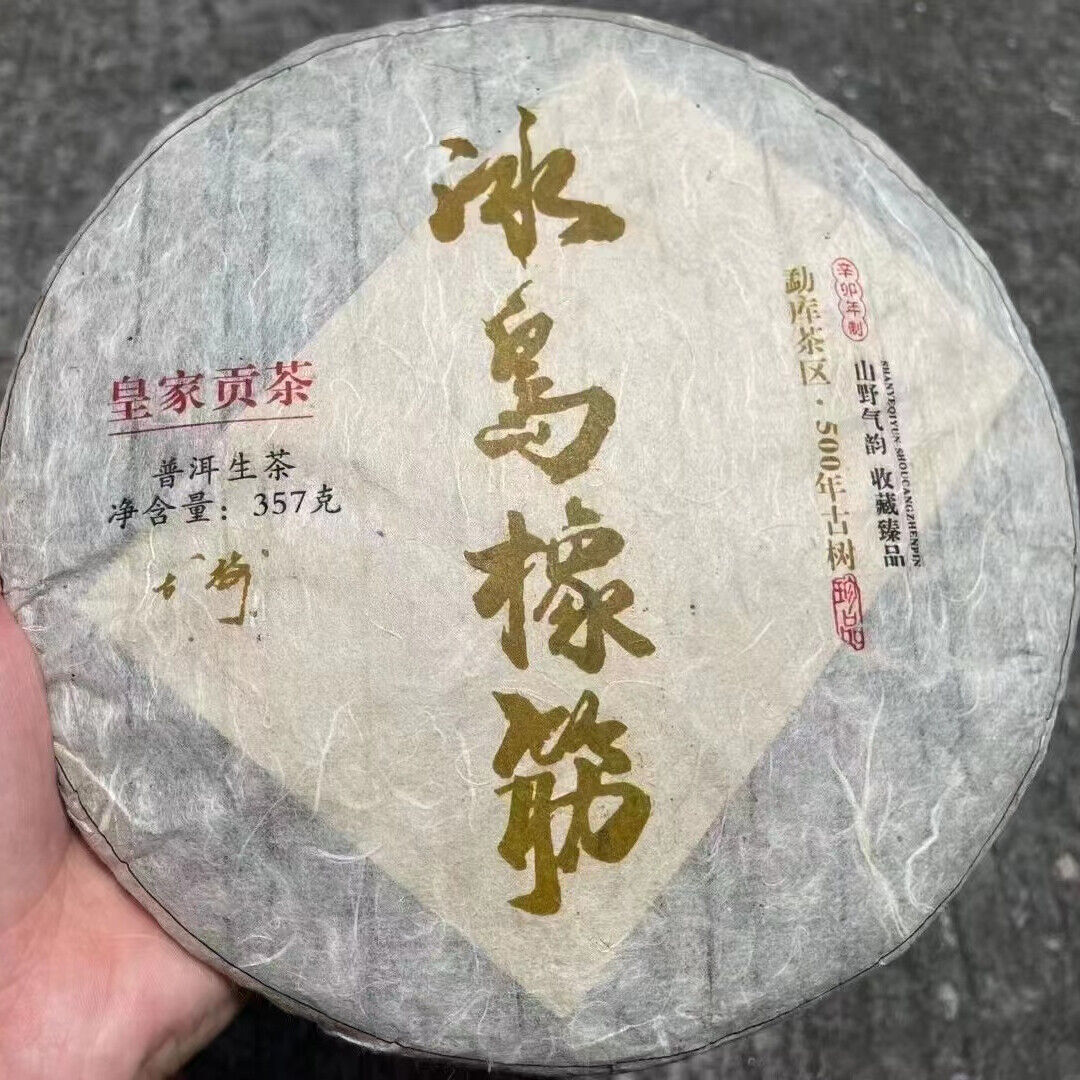 冰島橡筋
皇家贡茶
普洱生茶
净含量：357克
勐库茶区·500年古树
珍品
辛卯年制
山野气韵 收藏臻品
SHANYEQIYUN SHOUCANGZHENPIN